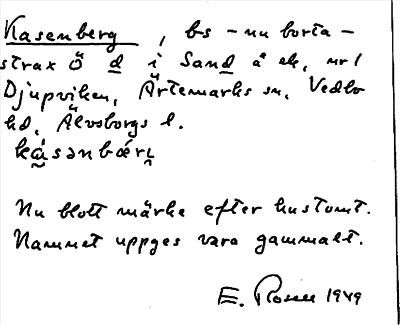 Kasenberg, bs - nu borta -
strax ö d i Sand å ek, nr 1
Djupviken, Ärtemarks sn, Vedbo
hd, Älvsborgs l.
Nu blott märke efter hustomt.
Namnet uppges vara gammalt.
E. Rosell 1949